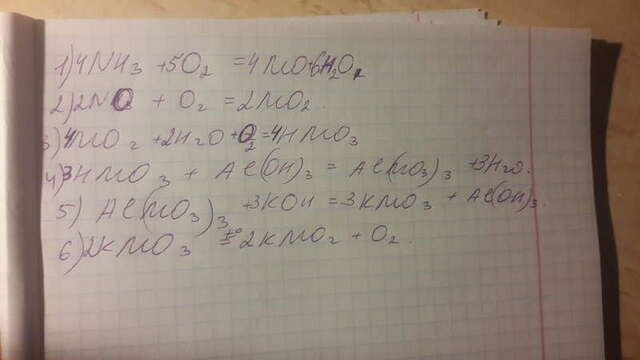 1) 4NH3 + 5O2 = 4NO + 6H2O
2) 2NO + O2 = 2NO2.
3) 4NO2 + 2H2O + O2 = 4HNO3
4) 3HNO3 + Al(OH)3 = Al(NO3)3 + 3H2O.
5) Al(NO3)3 + 3KOH = 3KNO3 + Al(OH)3.
6) 2KNO3 t° = 2KNO2 + O2.